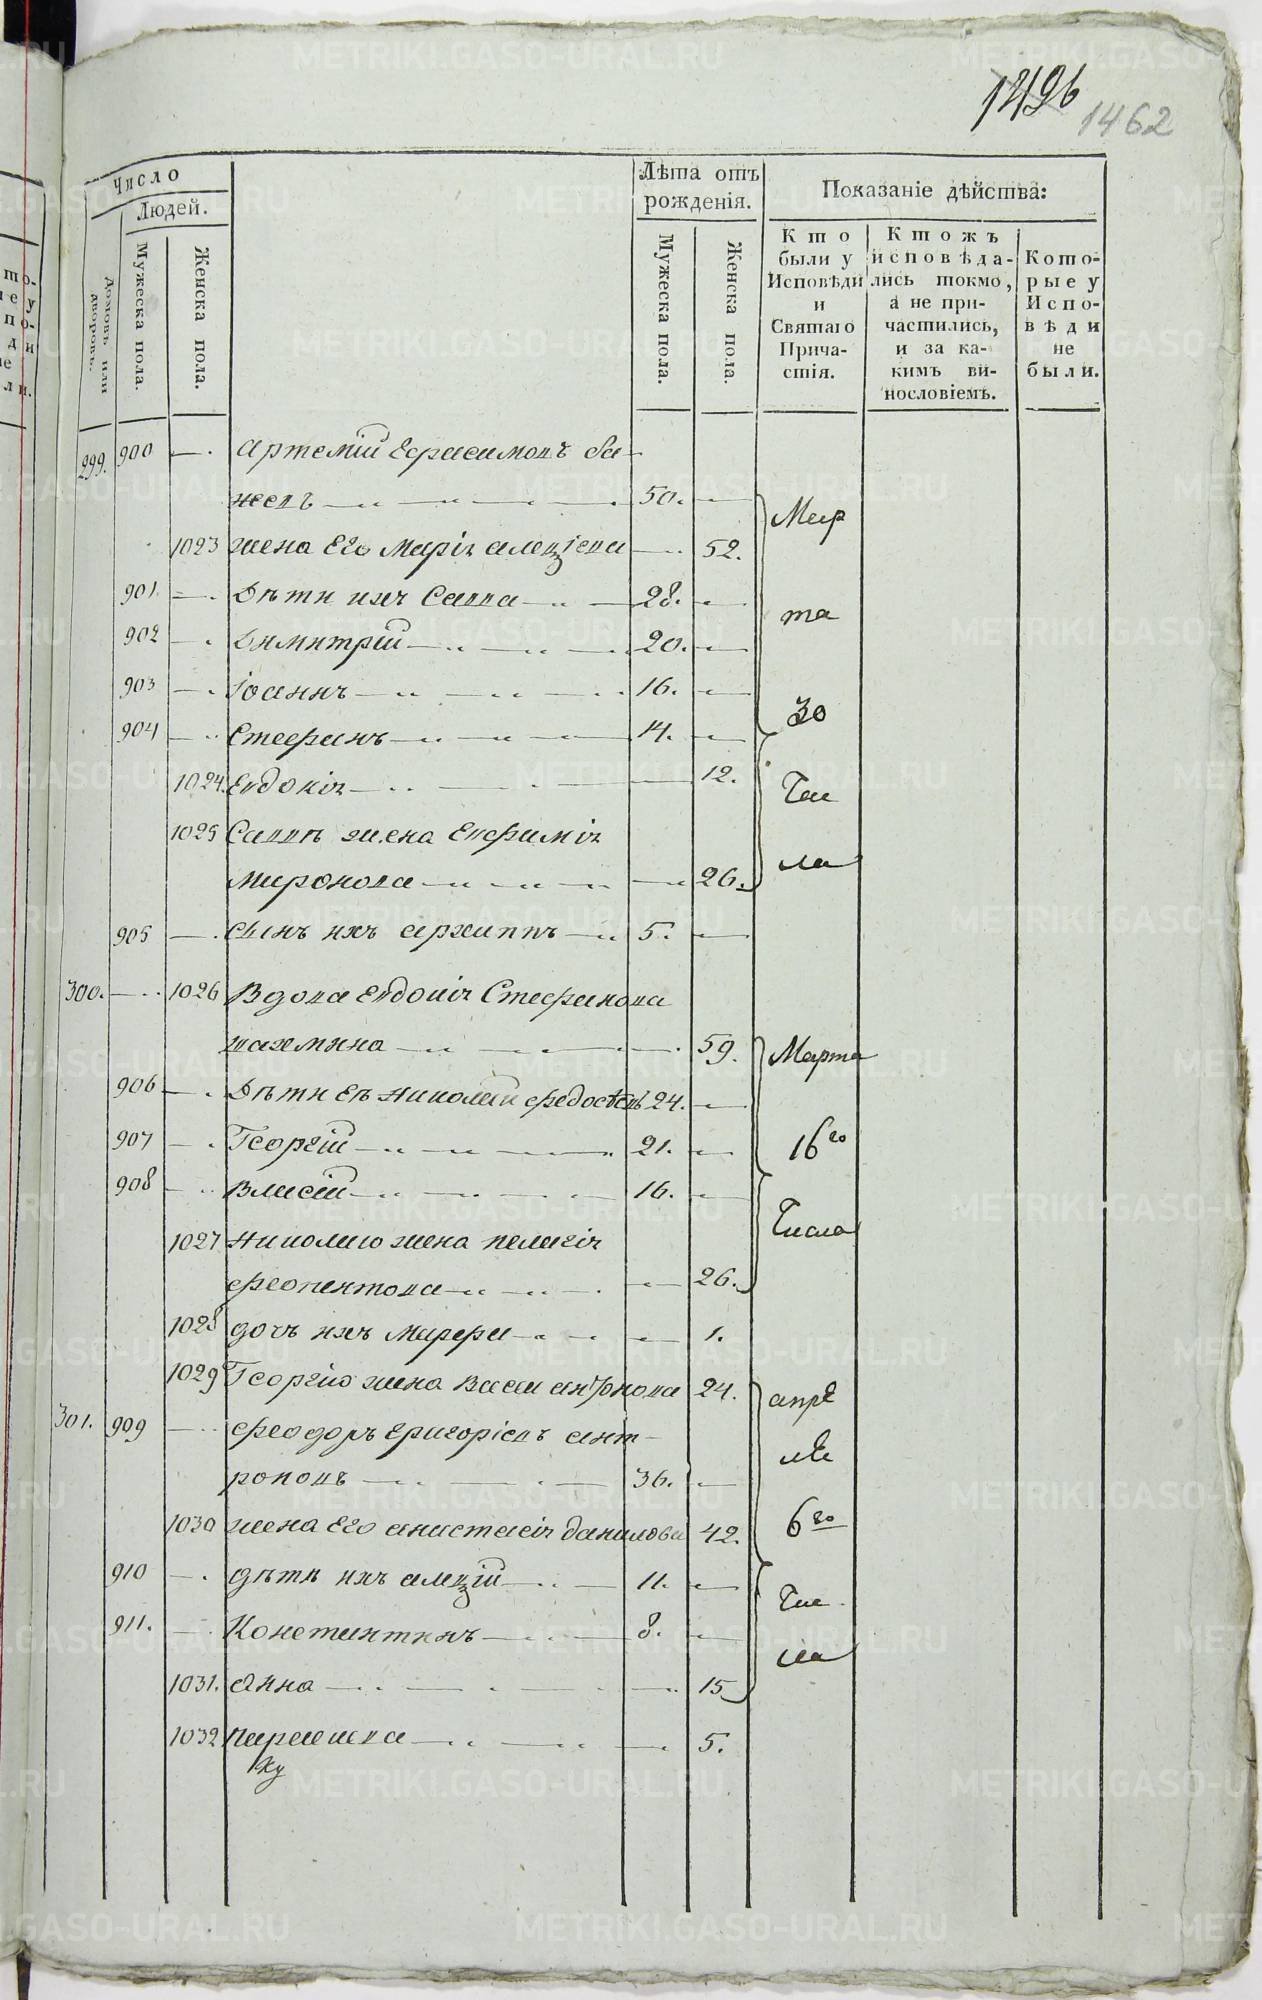 1496
1462
Число
Людей.
Домовъ или дворовъ.
Мужеска пола.
Женска пола.
Лѣта отъ рожденія.
Мужеска пола.
Женска пола.
Показаніе дѣйства:
Кто были у Исповѣди и Святаго Причастія.
Ктожъ исповѣдались токмо, а не причастились, и за какимъ винословіемъ.
Которые у Исповѣди не были.
299. 900 Артемій Герасимовъ Ба-
жевъ 50.
1023 жена Его Марія 52.
901 Дѣти ихъ Савва 28.
902 Димитрій 20.
903 Іоаннъ 16.
904 Стефанъ 14.
1024. Евдокія 12.
1025 Саввы жена Евфимія
Миронова 26.
905 сынъ ихъ Архиппъ 5.
Мар
та
30
Чис
ла
300. 1026 Вдова Евдокія Стефанова
59.
906 Дѣти Ея Николай Федосѣевъ 24.
907 Георгій 21.
908 Власій 16.
1027 Николаю жена Пелагія
26.
1028 дочь ихъ Марфа 1.
1029 Георгію жена Васса 24.
Марта
16го
Числа
301. 909 Феодоръ Григорьевъ Ант-
роповъ 36.
1030 жена Его Анастасія Данилова 42.
910 дѣти ихъ 11.
911. Константинъ 8.
1031. Анна 15
1032 5.
ку
апрѣ
ля
6го
Чис
ла
METRIKI.GASO-URAL.RU